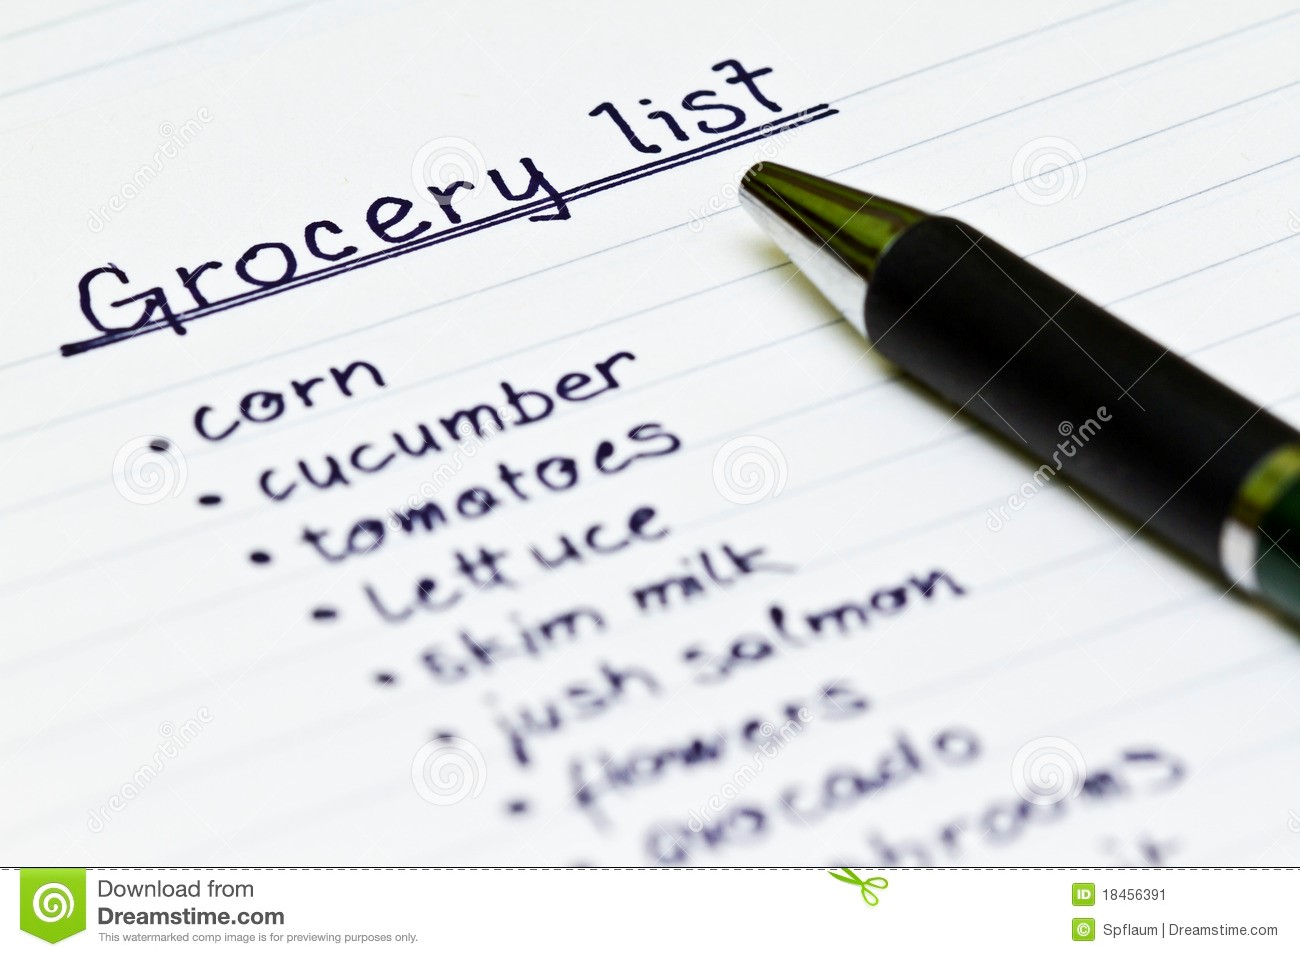 Grocery list
• corn
• cucumber
• tomatoes
• lettuce
• skim milk
• jush salmon
• flowers
avocado
Download from
Dreamstime.com
This watermarked comp image is for previewing purposes only.
ID 18456391
© Spflaum | Dreamstime.com